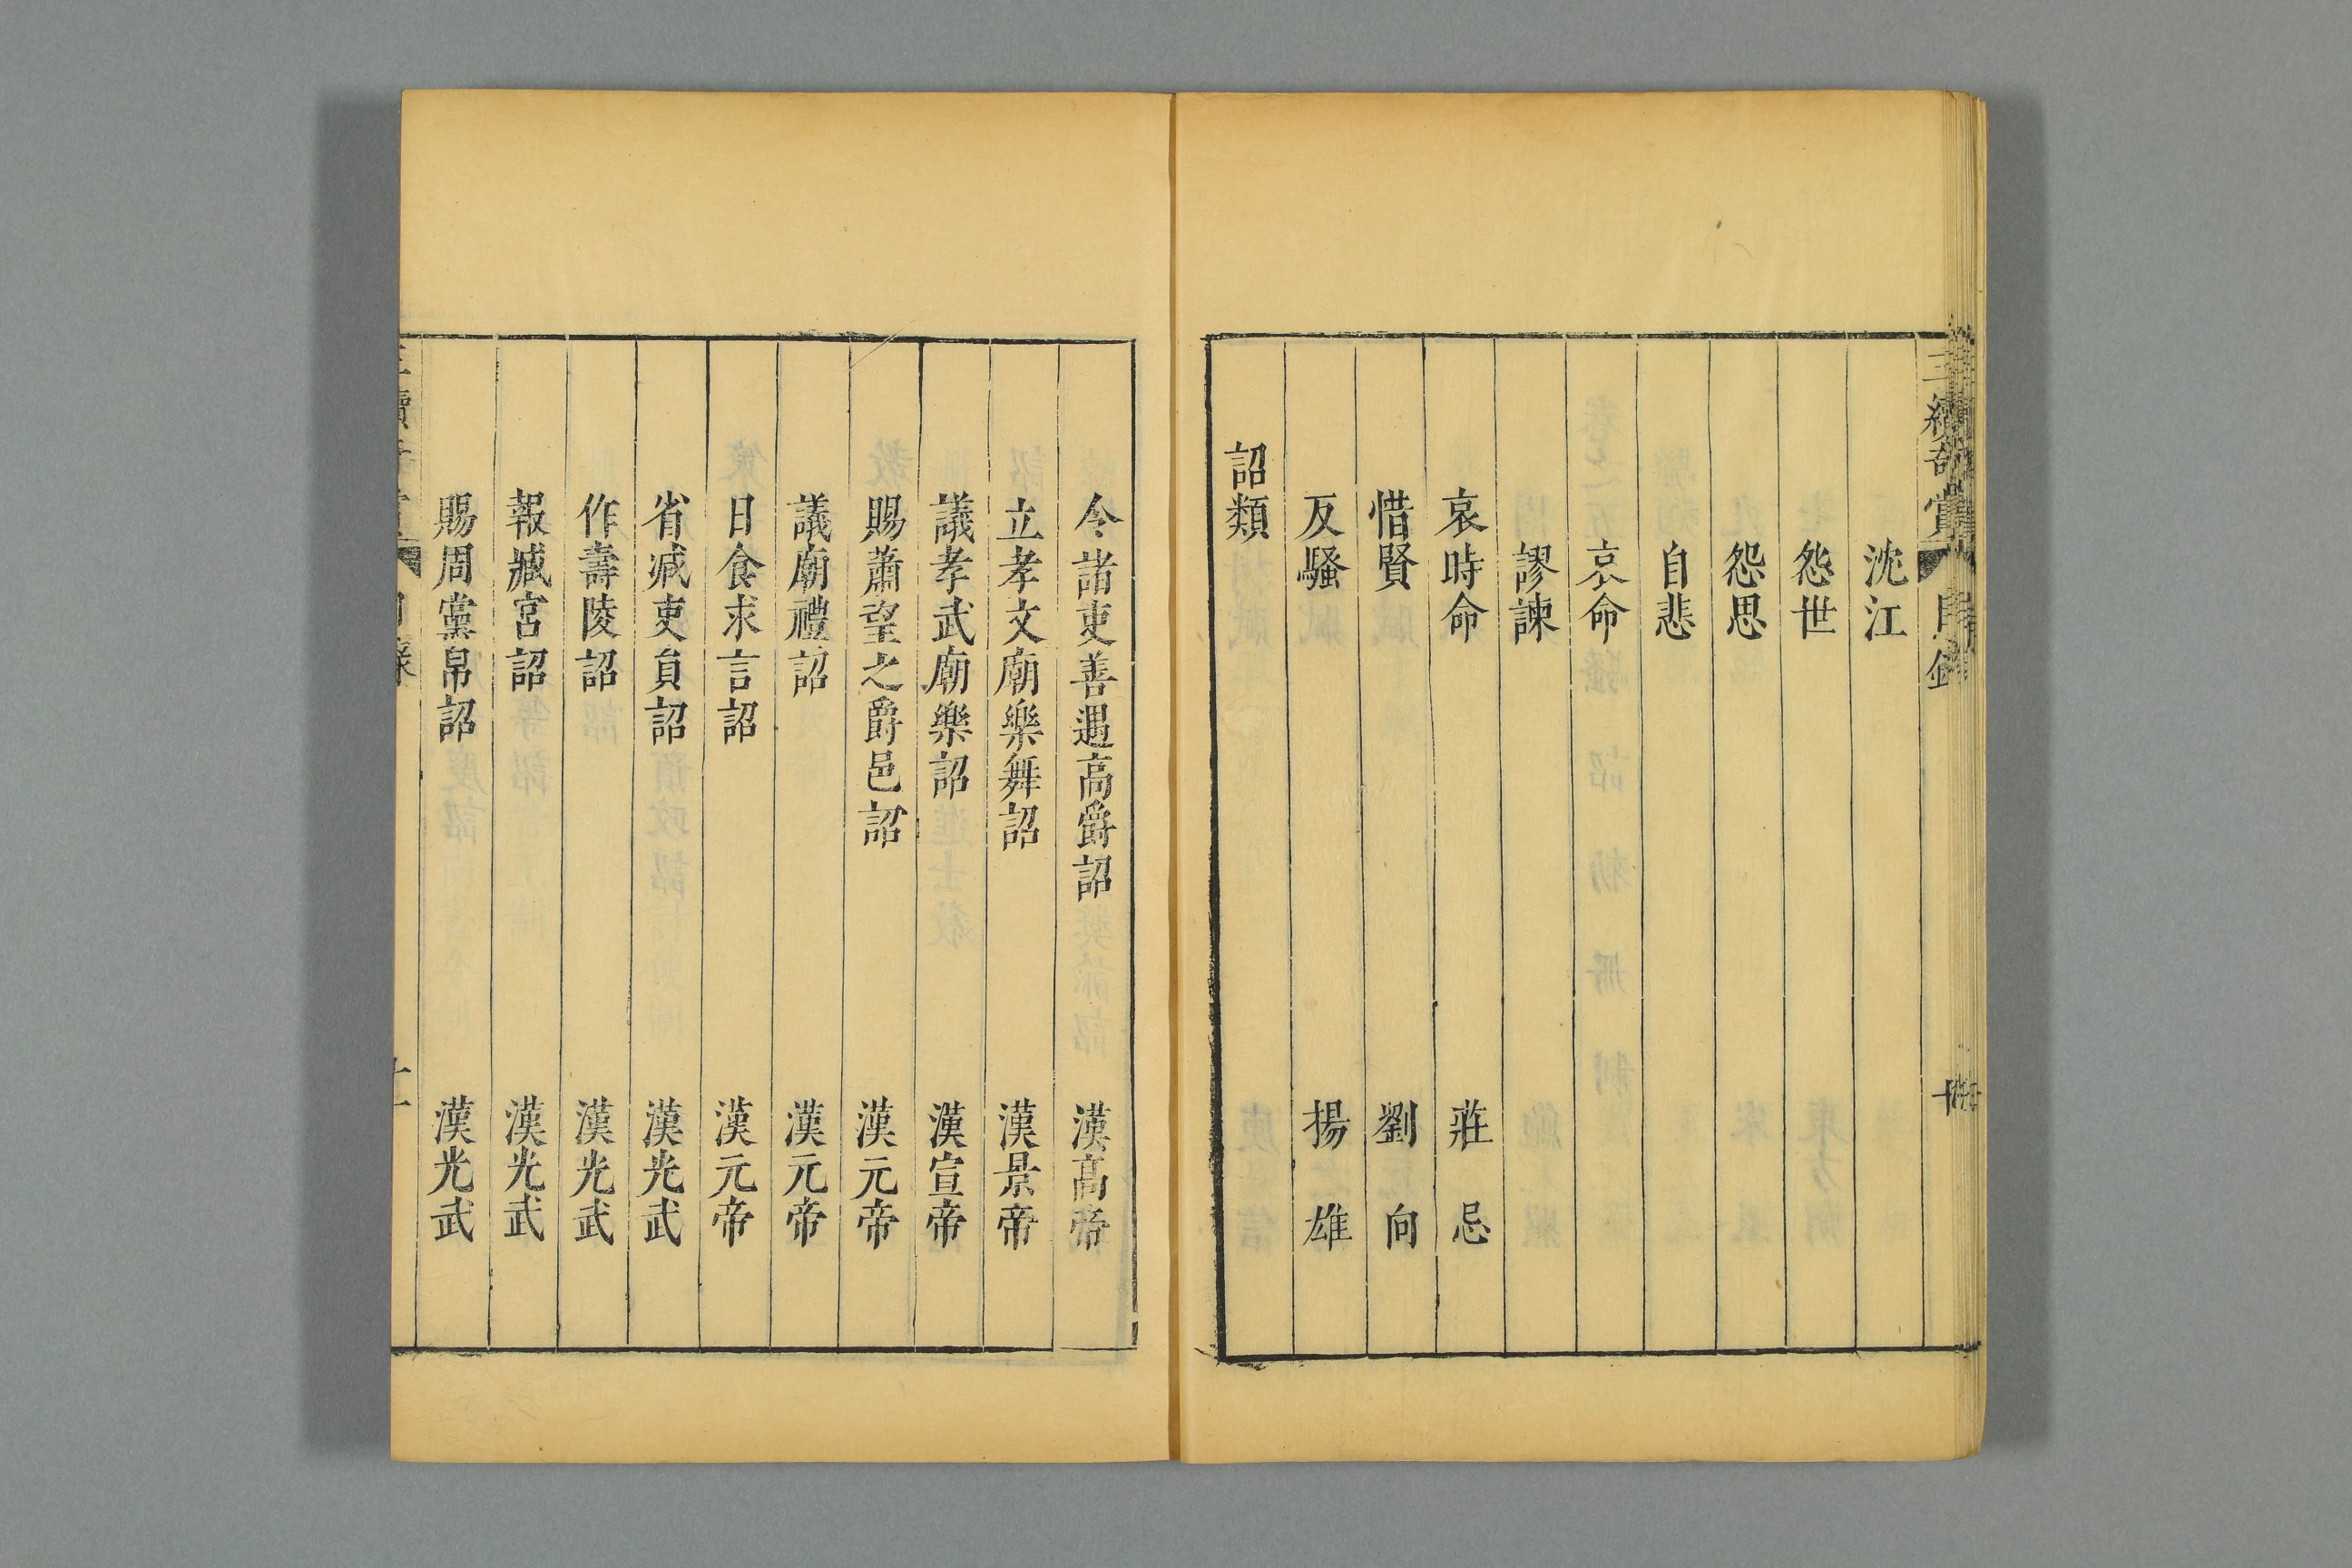 三續奇賞 目錄
沈江
怨世
怨思
自悲
哀命
謬諫
哀時命 莊忌
惜賢 劉向
反騷 揚雄
詔類
令諸吏善遇高爵詔 漢高帝
立孝文廟樂舞詔 漢景帝
議孝武廟樂詔 漢宣帝
賜蕭望之爵邑詔 漢元帝
議廟禮詔 漢元帝
日食求言詔 漢元帝
省减吏員詔 漢光武
作壽陵詔 漢光武
報臧宮詔 漢光武
賜周黨帛詔 漢光武